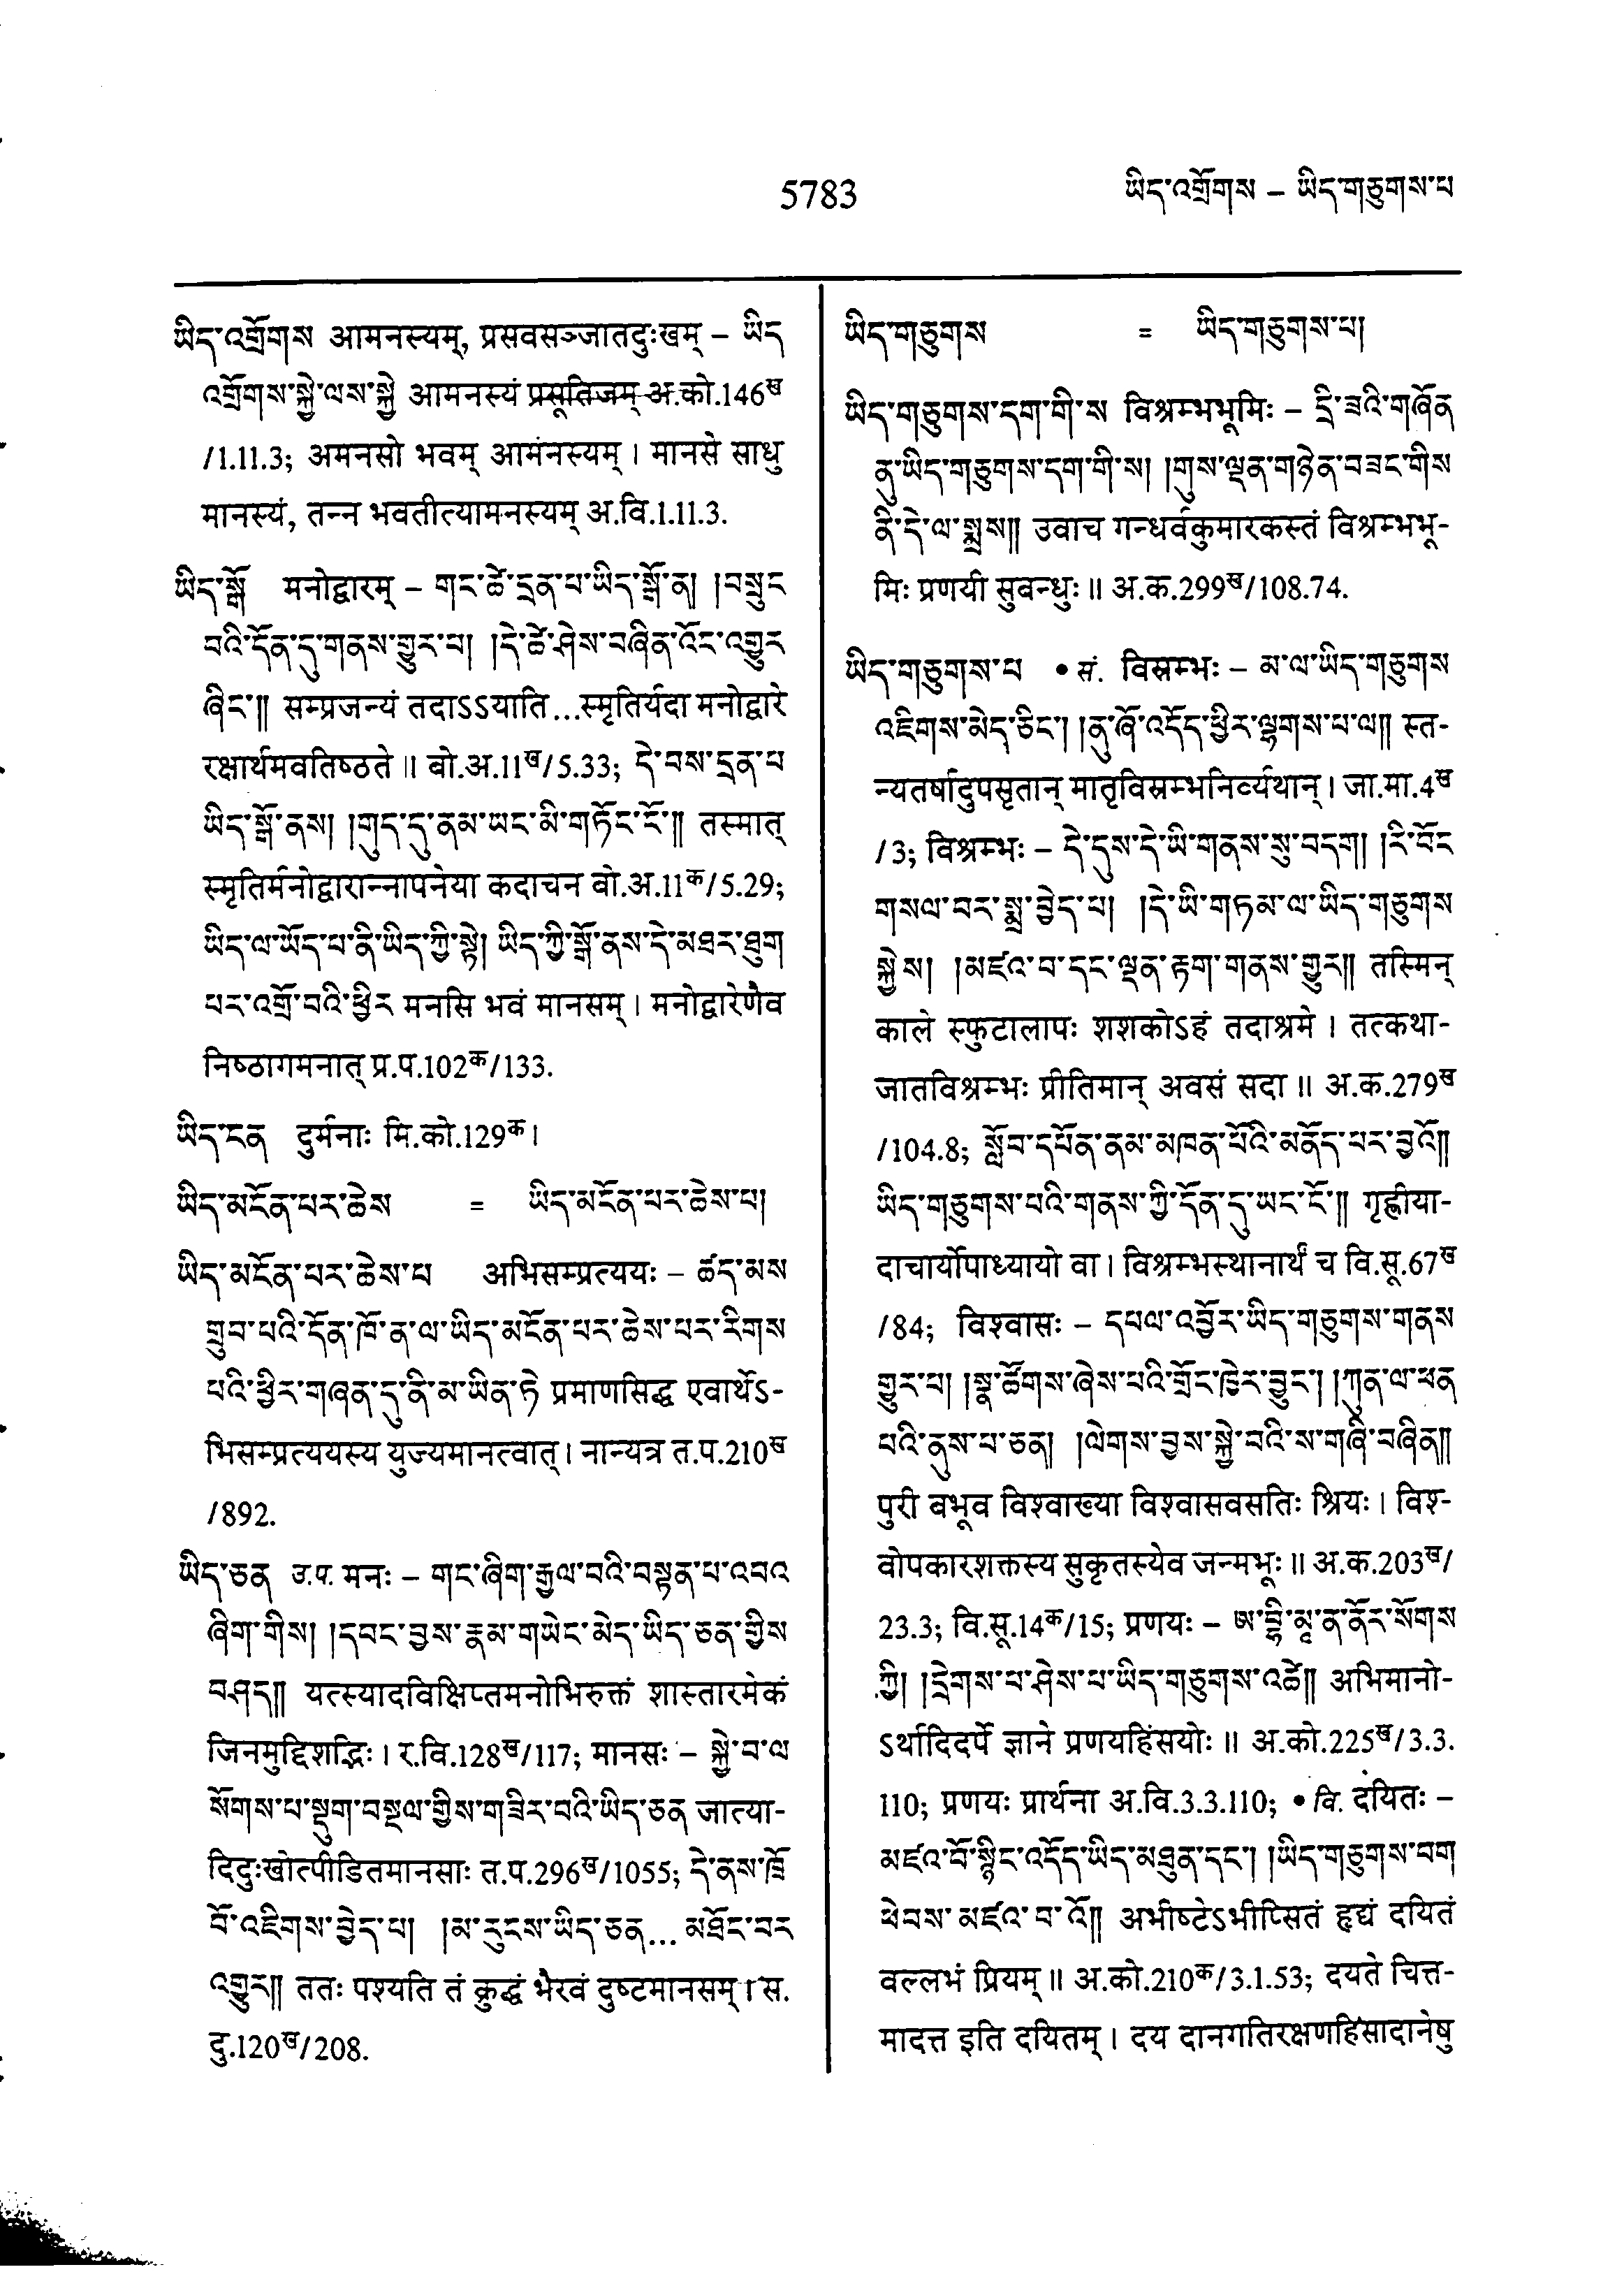 5783
ཡིད་འགྲོགས – ཡིད་གཅུགས་པ
ཡིད་འགྲོགས आमनस्यम्, प्रसवसञ्जातदुःखम् – ཡིད
འགྲོགས་སྐྱེ་ལས་སྐྱེ आमनस्यं प्रसूतिजम् अ.को.146ख
/1.11.3; अमनसो भवम् आमनस्यम् । मानसे साधु
मानस्यं, तन्न भवतीत्यामनस्यम् अ.वि.1.11.3.
ཡིད་སྒོ मनोद्वारम् – གང་ཚེ་དྲན་པ་ཡིད་སྒོ་ན། །བསྲུང
བའི་དོན་དུ་གནས་གྱུར་པ། །དེ་ཚེ་ཤེས་བཞིན་འོང་འགྱུར
ཞིང་༎ सम्प्रजन्यं तदाऽऽयाति...स्मृतिर्यदा मनोद्वारे
रक्षार्थमवतिष्ठते ॥ बो.अ.11ख/5.33; དེ་བས་དྲན་པ
ཡིད་སྒོ་ནས། །གུད་དུ་ནམ་ཡང་མི་གཏོང་ངོ་༎ तस्मात्
स्मृतिर्मनोद्वारान्नापनेया कदाचन बो.अ.11क/5.29;
ཡིད་ལ་ཡོད་པ་ནི་ཡིད་ཀྱི་སྟེ། ཡིད་ཀྱི་སྒོ་ནས་དེ་མཐར་ཐུག
པར་འགྲོ་བའི་ཕྱིར मनसि भवं मानसम् । मनोद्वारेणैव
निष्ठागमनात् प्र.प.102क/133.
ཡིད་ངན दुर्मनाः मि.को.129क।
ཡིད་མངོན་པར་ཆེས = ཡིད་མངོན་པར་ཆེས་པ།
ཡིད་མངོན་པར་ཆེས་པ अभिसम्प्रत्ययः – ཚད་མས
གྲུབ་པའི་དོན་ཁོ་ན་ལ་ཡིད་མངོན་པར་ཆེས་པར་རིགས
པའི་ཕྱིར་གཞན་དུ་ནི་མ་ཡིན་ཏེ प्रमाणसिद्ध एवार्थेऽ-
भिसम्प्रत्ययस्य युज्यमानत्वात् । नान्यत्र त.प.210ख
/892.
ཡིད་ཅན उ.प. मनः – གང་ཞིག་རྒྱལ་བའི་བསྟན་པ་འབའ
ཞིག་གིས། །དབང་བྱས་རྣམ་གཡེང་མེད་ཡིད་ཅན་གྱིས
བཤད༎ यत्स्यादविक्षिप्तमनोभिरुक्तं शास्तारमेकं
जिनमुद्दिशद्भिः । र.वि.128ख/117; मानसः – སྐྱེ་བ་ལ
སོགས་པ་སྡུག་བསྔལ་གྱིས་གཟིར་བའི་ཡིད་ཅན जात्या-
दिदुःखोत्पीडितमानसाः त.प.296ख/1055; དེ་ནས་ཁྲོ
བོ་འཇིགས་བྱེད་པ། །མ་རུངས་ཡིད་ཅན... མཐོང་བར
འགྱུར༎ ततः पश्यति तं क्रुद्धं भैरवं दुष्टमानसम् । स.
दु.120ख/208.
ཡིད་གཅུགས = ཡིད་གཅུགས་པ།
ཡིད་གཅུགས་དག་གི་ས विश्रम्भभूमिः – དྲི་ཟའི་གཞོན
ནུ་ཡིད་གཅུགས་དག་གི་ས། །གུས་ལྡན་གཉེན་བཟང་གིས
ནི་དེ་ལ་སྨྲས༎ उवाच गन्धर्वकुमारकस्तं विश्रम्भभू-
मिः प्रणयी सुबन्धुः ॥ अ.क.299ख/108.74.
ཡིད་གཅུགས་པ • सं. विस्रम्भः – མ་ལ་ཡིད་གཅུགས
འཇིགས་མེད་ཅིང་། །ནུ་ཞོ་འདོད་ཕྱིར་ལྷགས་པ་ལ༎ स्त-
न्यतर्षादुपसृतान् मातृविस्रम्भनिर्व्यथान् । जा.मा.4ख
/3; विश्रम्भः – དེ་དུས་དེ་ཡི་གནས་སུ་བདག། །རི་བོང
གསལ་བར་སྨྲ་བྱེད་པ། །དེ་ཡི་གཏམ་ལ་ཡིད་གཅུགས
སྐྱེས། །མཛའ་བ་དང་ལྡན་རྟག་གནས་གྱུར༎ तस्मिन्
काले स्फुटालापः शशकोऽहं तदाश्रमे । तत्कथा-
जातविश्रम्भः प्रीतिमान् अवसं सदा ॥ अ.क.279ख
/104.8; སློབ་དཔོན་ནམ་མཁན་པོའི་མནོད་པར་བྱའོ༎
ཡིད་གཅུགས་པའི་གནས་ཀྱི་དོན་དུ་ཡང་ངོ་༎ गृह्णीया-
दाचार्योपाध्यायो वा । विश्रम्भस्थानार्थं च वि.सू.67ख
/84; विश्वासः – དཔལ་འབྱོར་ཡིད་གཅུགས་གནས
གྱུར་པ། །སྣ་ཚོགས་ཞེས་པའི་གྲོང་ཁྱེར་བྱུང་། །ཀུན་ལ་ཕན
པའི་ནུས་པ་ཅན། །ལེགས་བྱས་སྐྱེ་བའི་ས་གཞི་བཞིན༎
पुरी बभूव विश्वाख्या विश्वासवसतिः श्रियः । विश-
वोपकारशक्तस्य सुकृतस्येव जन्मभूः ॥ अ.क.203ख/
23.3; वि.सू.14क/15; प्रणयः – ཨ་བྷི་མཱ་ན་ནོར་སོགས
ཀྱི། །དྲེགས་པ་ཤེས་པ་ཡིད་གཅུགས་འཚེ༎ अभिमानो-
ऽर्थादिदर्पे ज्ञाने प्रणयहिंसयोः ॥ अ.को.225ख/3.3.
110; प्रणयः प्रार्थना अ.वि.3.3.110; • वि. दयितः –
མཛའ་བོ་སྙིང་འདོད་ཡིད་མཐུན་དང་། །ཡིད་གཅུགས་བག
ཕེབས་མཛའ་བ་འོ༎ अभीष्टेऽभीप्सितं हृद्यं दयितं
वल्लभं प्रियम् ॥ अ.को.210क/3.1.53; दयते चित्त-
मादत्त इति दयितम् । दय दानगतिरक्षणहिंसादानेषु